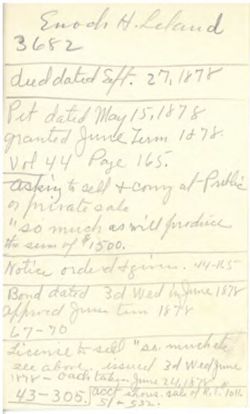 Enoch H. Leland
3682
deed dated Sept. 27, 1878
Pet dated May 15, 1878
granted June Term 1878
Vol 44 Page 165.
asking to sell & convy at Public
or private sale
"so much as will produce
the sum of $1500.
Notice ordered & given. 44-
Bond dated 3d Wed in June 1878
approvd June term 1878
67-70
License to sell "so much etc
see above issued 3d Wed June
1878 - oath taken June 24, 1878
43-305. acct shows sale of R.E.
51-532.